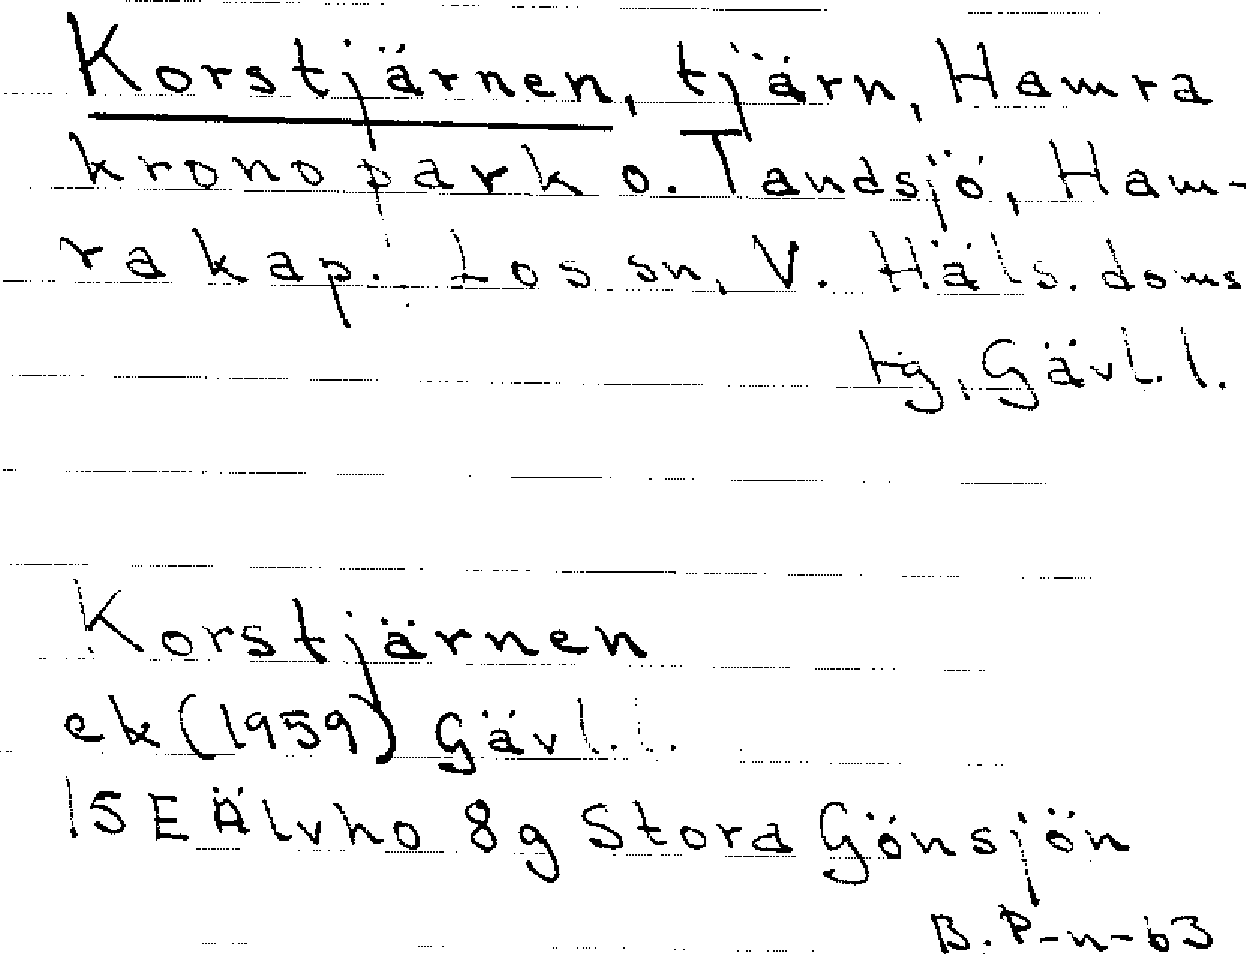 Korstjärnen, tjärn, Hamra
kronopark o. Tandsjö, Ham-
ra kap. Los sn, V. Häls. doms
tg, Gävl. l.
Korstjärnen
ek (1959) Gävl. l.
15E Älvho 8g Stora Gönsjön
B. P-n-63